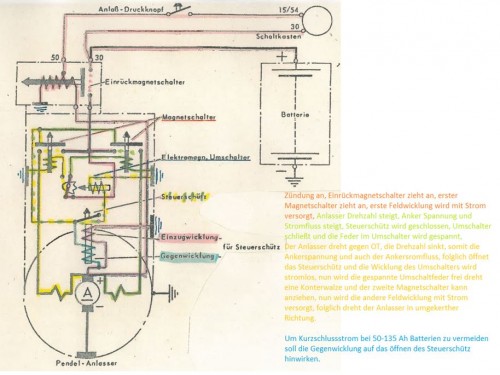 Anlaß-Druckknopf
15/54
30
Schaltkasten
50
30
Einrückmagnetschalter
Batterie
Magnetschalter
Elektromagn. Umschalter
Steuerschütz
Einzugwicklung
für Steuerschütz
Gegenwicklung
A
Pendel-Anlasser
Zündung an, Einrückmagnetschalter zieht an, erster
Magnetschalter zieht an, erste Feldwicklung wird mit Strom
versorgt, Anlasser Drehzahl steigt, Anker Spannung und
Stromfluss steigt, Steuerschütz wird geschlossen, Umschalter
schließt und die Feder im Umschalter wird gespannt,
Der Anlasser dreht gegen OT, die Drehzahl sinkt, somit die
Ankerspannung und auch der Ankerstromfluss, folglich öffnet
das Steuerschütz und die Wicklung des Umschalters wird
stromlos, nun wird die gespannte Umschaltfeder frei dreht
eine Konterwalze und der zweite Magnetschalter kann
anziehen, nun wird die andere Feldwicklung mit Strom
versorgt, folglich dreht der Anlasser in umgekerther
Richtung.
Um Kurzschlussstrom bei 50-135 Ah Batterien zu vermeiden
soll die Gegenwicklung auf das öffnen des Steuerschütz
hinwirken.